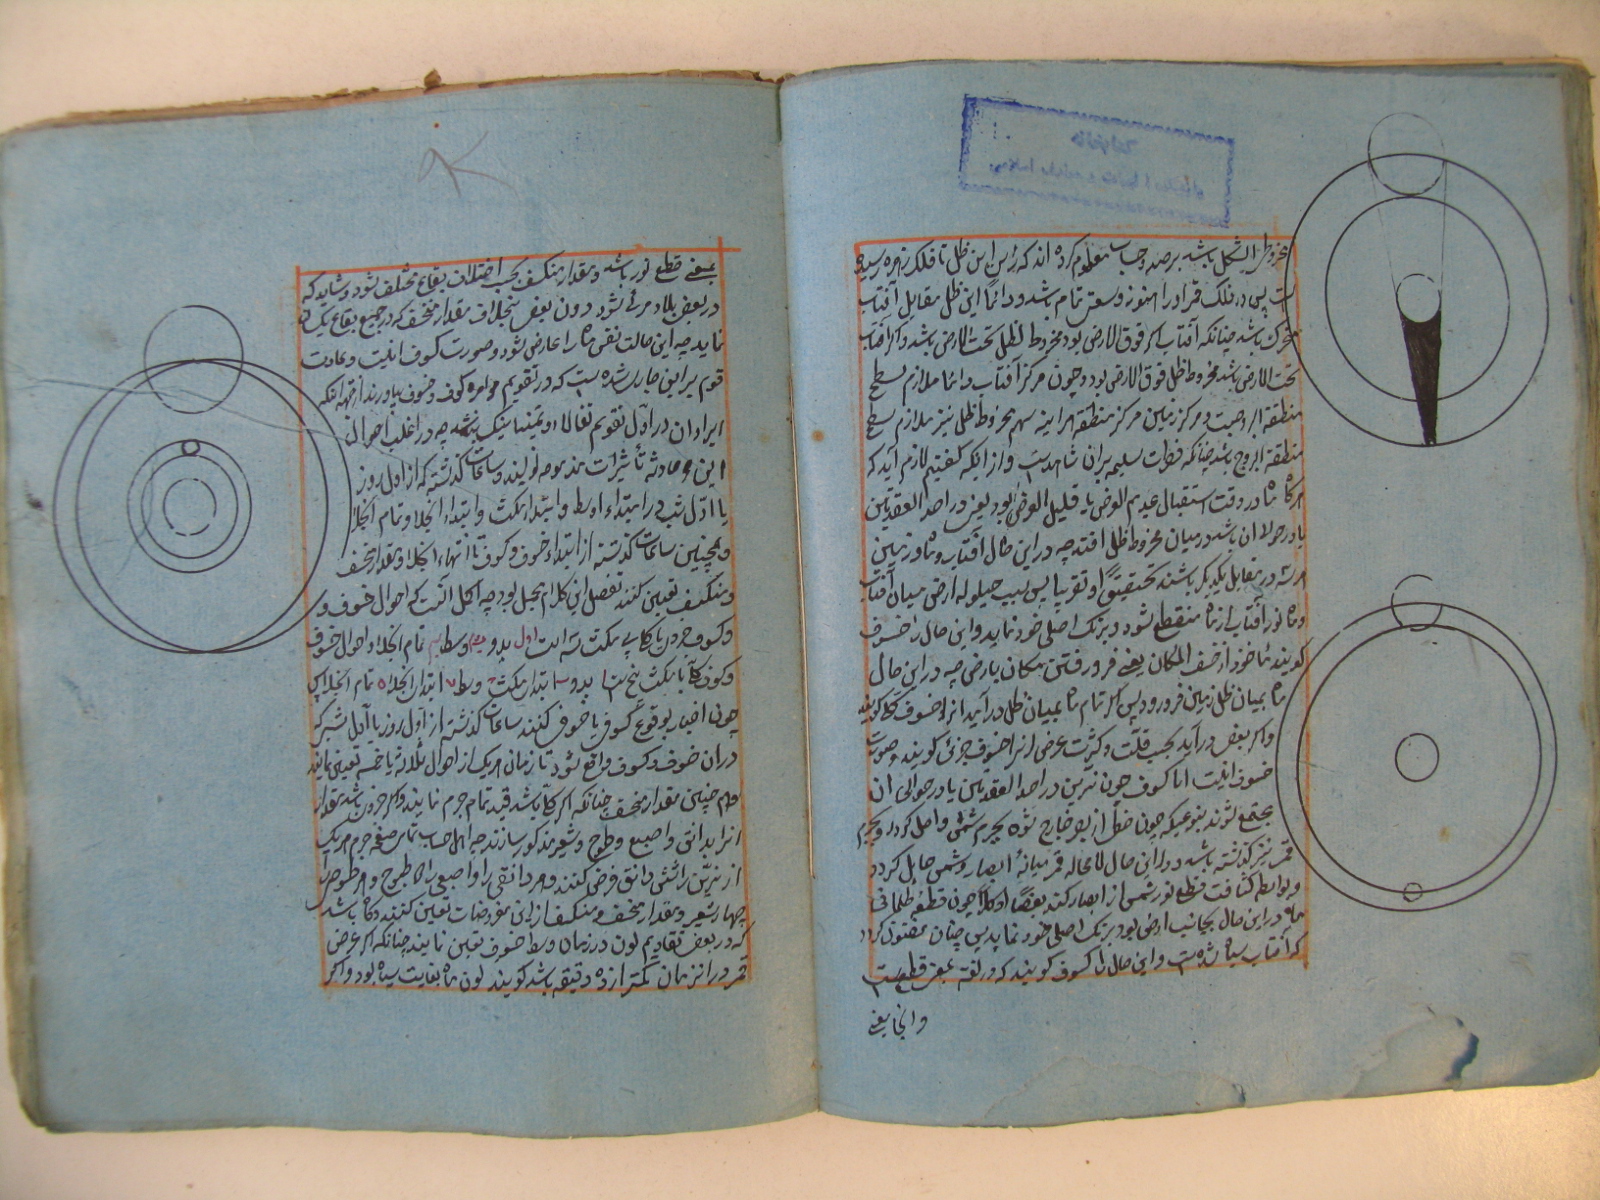 مخروطی الشکل باشد برصد و حساب معلوم کرده اند که رأس این ظل تا فلک زهره رسیده
است پس در فلک قمر او را هنوز وسعتی تمام باشد و دائماً این ظل مقابل آفتاب
متحرک باشد چنانکه آفتاب اگر فوق الارض بود مخروط الظل تحت الارض باشد و اگر آفتاب
تحت الارض باشد مخروط ظل فوق الارض بود و چون مرکز آفتاب دائما ملازم سطح
منطقة البروجست و مرکز زمین مرکز منطقه هر اینه سهم مخروط ظل نیز ملازم سطح
منطقة البروج باشد چنانکه فطرت سلیمه بران شاهدست و از انکه گفتیم لازم آید که
هرگاه ماه در وقت استقبال عدیم العرض یا قلیل العرض بود یعنی در احد العقدتین
یا در حوالی ان باشد در میان مخروط ظل افتد چه در این حال آفتاب و ماه و زمین
هر سه در مقابل یکدیگر باشند تحقیقاً او تقریبا پس بسبب حیلوله ارض میان آفتاب
و ماه نور آفتاب از ماه منقطع شود و برنک اصلی خود نماید و این حال را خسوف
گویند ماخوذ از خسف المکان یعنی فرو رفتن مکان بارض چه در این حال
ماه بمیان ظل زمین فرو رود پس اگر تمام ماه بمیان ظل در آید انرا خسوف کلی گویند
و اگر بعضی در آید بحسب قلّت و کثرت عرض انرا خسوف جزئی گویند و صورت
خسوف اینست اما کسوف چون نیّرین در احد العقدتین یا در حوالی ان
مجتمع شوند بنوعیکه چون خطی از بصر خارج شود بجرم شمس واصل گردد و بجرم
قمر نیز گذشته باشد در این حال لامحاله قمر میانهٔ ابصار و شمس حایل گردد
و بواسطه کثافت قطع نور شمس از ابصار کند بعضاً او کلاً چون قطعه ظلمانی
ماه در این حال بجانب ارض بود برنک اصلی خود نماید پس چنان مظنون گردد
که آفتاب سیاه شده است و این حال را کسوف گویند که در لغة بمعنی قطع است
و انجا یعنی
بمعنی قطع نور باشد و مقدار منکسف بحسب اختلاف بقاع مختلف شود و شاید که
در بعض بلاد مرئی شود دون بعض بخلاف مقدار منخسف که در جمیع بقاع یکسان
نماید چه این حالت نفس ماه را عارض شود و صورت کسوف اینست و عادت
قوم بر این جاری شده است که در تقویم مؤامره کسوف و خسوف بیاورند از جهة انکه
ایراد ان در اوّل تقویم تفالا و تیمنا نیک نباشد چه در اغلب احوال
این حادثه تأثیرات مذمومه نویسند و ساعات گذشته که از اول روز
یا اوّل شب در ابتداء اوسط و ابتدا مکث و ابتداء انجلا و تمام انجلا
و همچنین ساعات گذشته از ابتداء خسوف و کسوف تا انتهاء انجلا و مقدار منخسف
و منکسف تعیین کنند تفصیل این کلام مجمل بود چه اکمل انست که احوال خسوف و
و کسوف جزئی یا کلی بی مکث سه است اول بدو دویم وسط سیم تمام انجلا و احوال خسوف
و کسوف کلی با مکث پنج است بدو ابتدا مکث وسط ابتدا انجلا تمام انجلا پس
چون اخبار بوقوع کسوف یا خسوف کنند ساعات گذشته از اول روز یا اوّل شبی که
در ان خسوف و کسوف واقع شود تا زمان هر یک از احوال ثلاثه یا خمسه تعیین نمایند
و هم چنین مقدار منخسف چنانکه اگر کلی باشد قید تمام جرم نمایند و اگر جزئی باشد مقدار
انرا بدانق و اصبع و طرح و شعیر مذکور سازند چه اهل حساب تمامی صفحه جرم هر یک
از نیّرین را شش دانق فرض کنند و هر دانقی را دو اصبع
چهار شعیر و مقدار منخسف و منکسف از این مفروضات تعیین کنند و گاه باشد
که در بعض تقاویم لون در زمان وسط خسوف تعیین نمایند چنانکه اگر عرض
قمر در ان زمان کمتر از ده دقیقه باشد گویند لون ماه بغایت سیاه بود و اگر